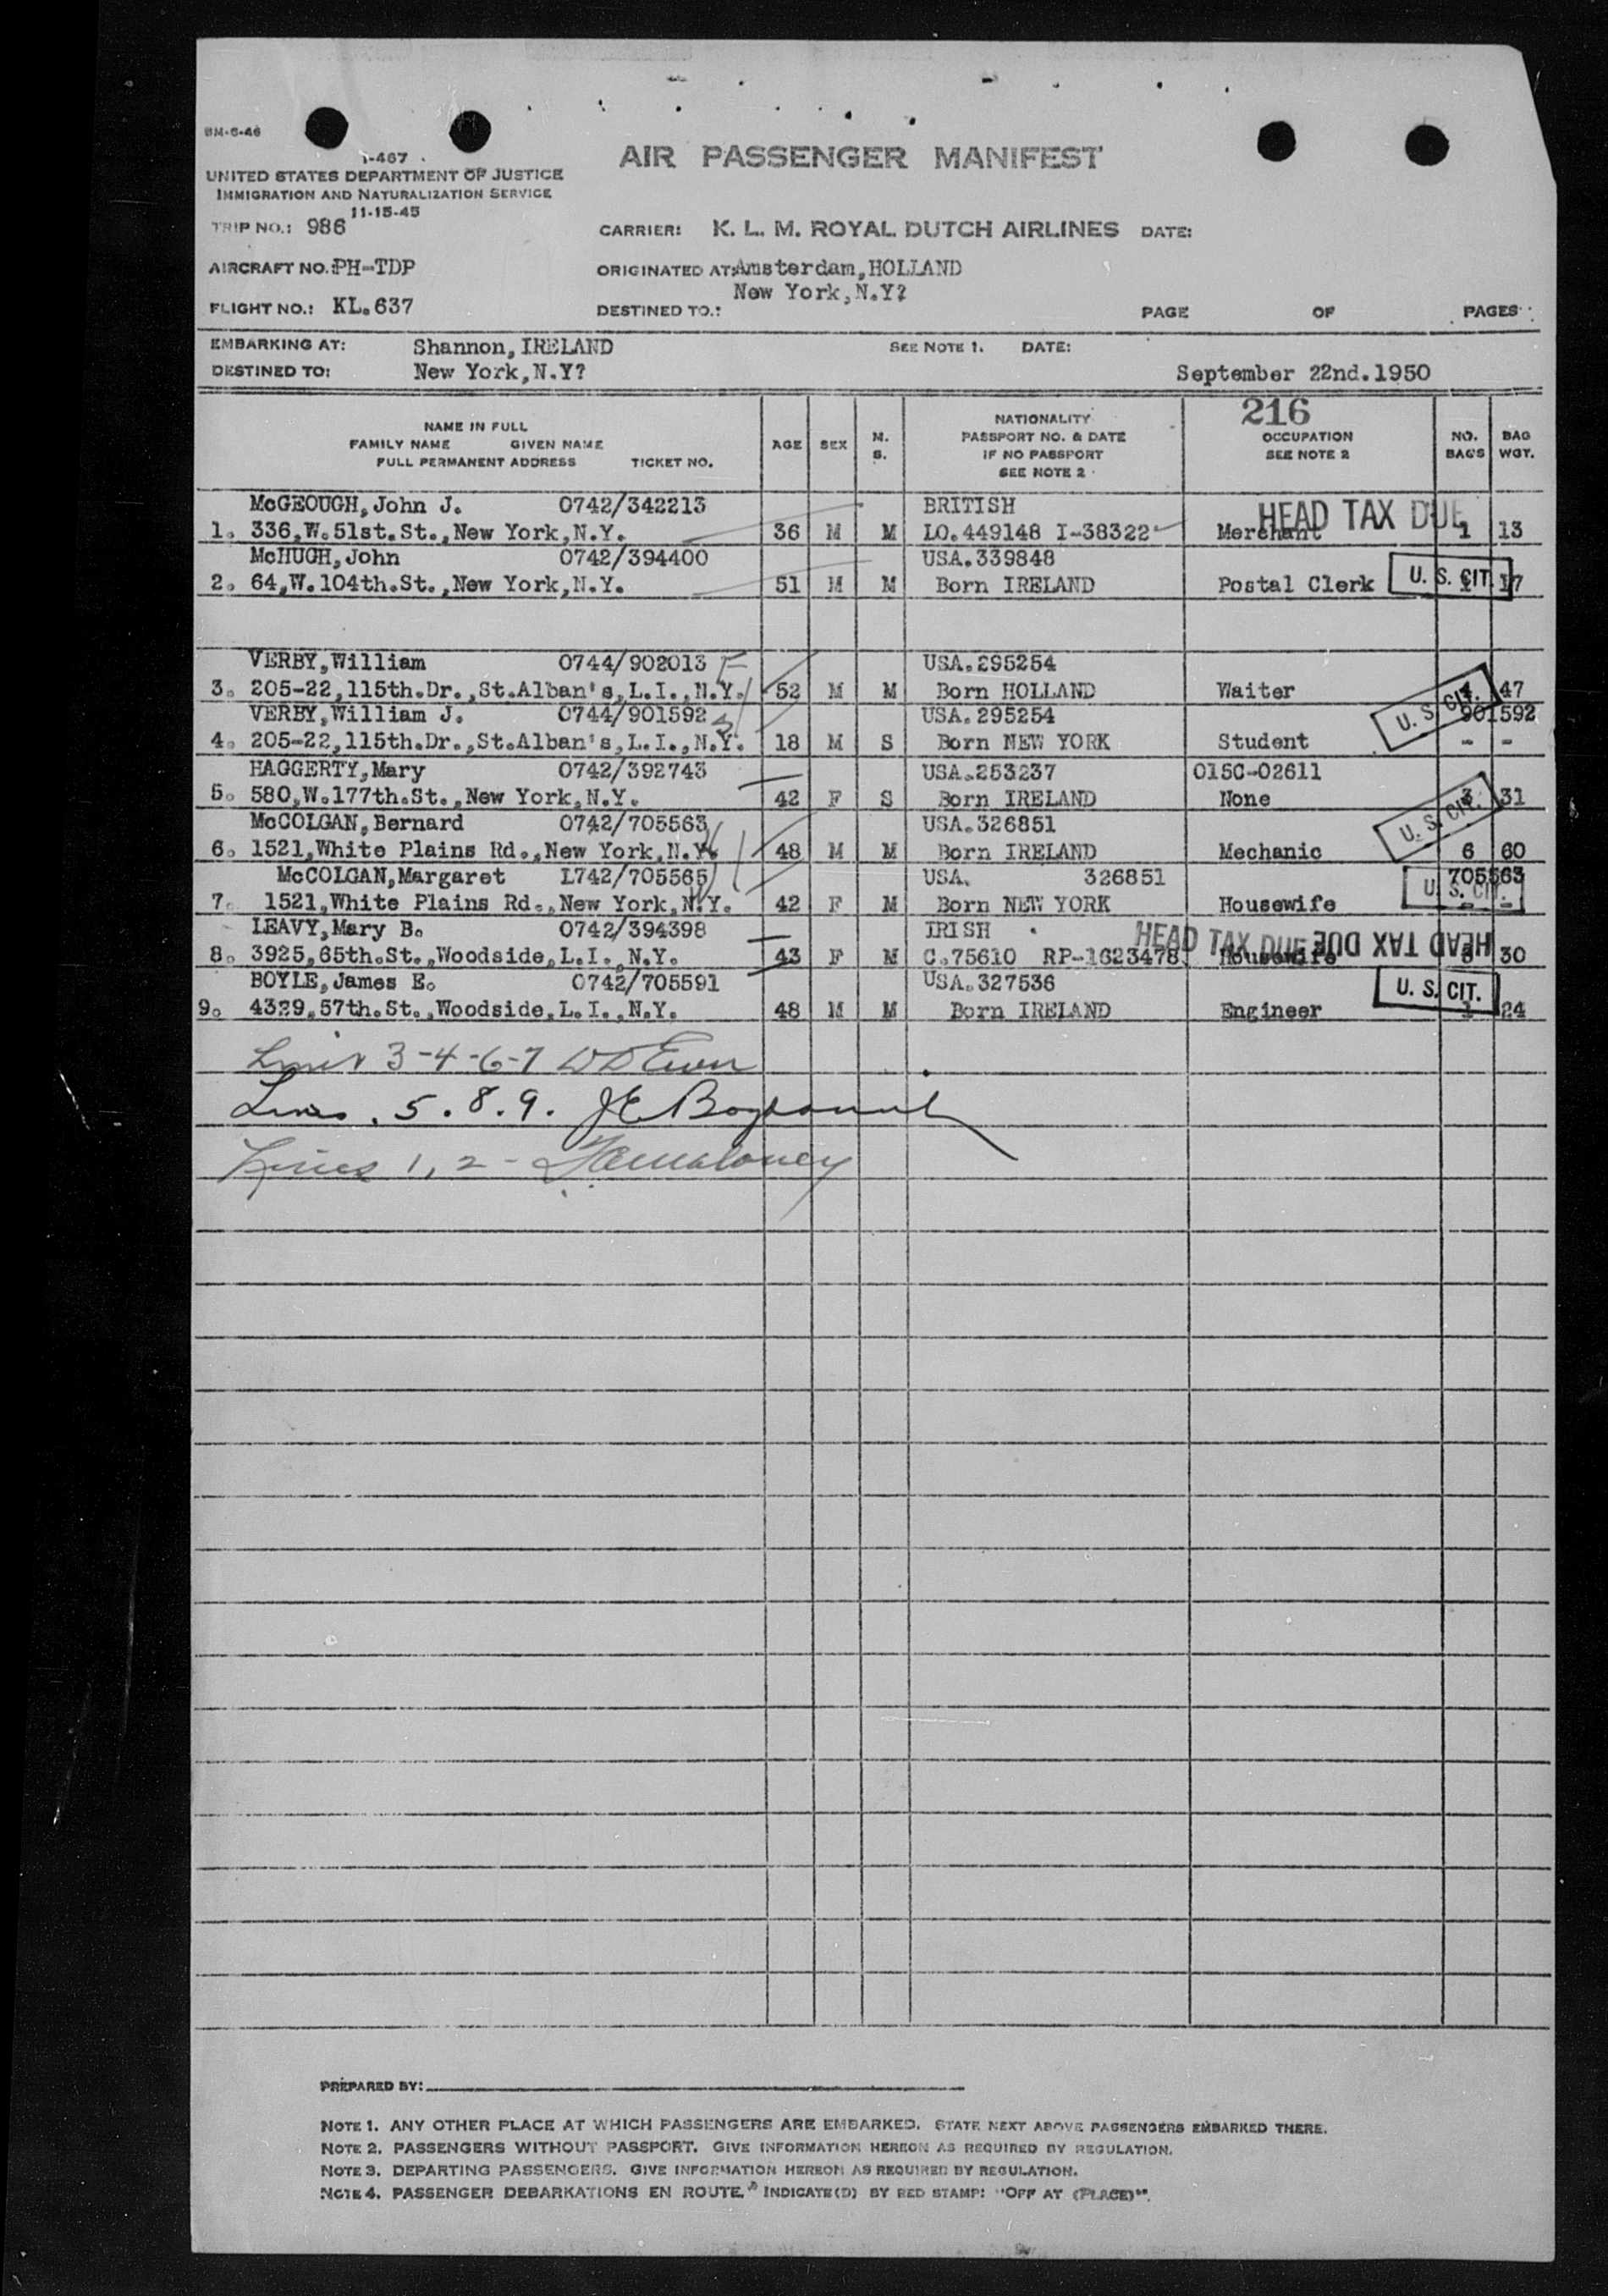 BM-6-46
I-467
UNITED STATES DEPARTMENT OF JUSTICE
IMMIGRATION AND NATURALIZATION SERVICE
11-15-45
AIR PASSENGER MANIFEST
TRIP NO.: 986
CARRIER: K. L. M. ROYAL DUTCH AIRLINES DATE:
AIRCRAFT NO.: PH-TDP
ORIGINATED AT: Amsterdam, HOLLAND
New York, N.Y?
FLIGHT NO.: KL. 637
DESTINED TO.: PAGE OF PAGES
EMBARKING AT: Shannon, IRELAND SEE NOTE 1. DATE:
DESTINED TO: New York, N.Y? September 22nd. 1950
216
NAME IN FULL
FAMILY NAME GIVEN NAME
FULL PERMANENT ADDRESS TICKET NO.
AGE SEX M. S.
NATIONALITY
PASSPORT NO. & DATE
IF NO PASSPORT
SEE NOTE 2
OCCUPATION
SEE NOTE 2
NO. BAGS
BAG WGT.
McGEOUGH, John J. 0742/342213 BRITISH HEAD TAX DUE
1. 336, W. 51st. St., New York, N.Y. 36 M M LO. 449148 I-38322 Merchant 1 13
McHUGH, John 0742/394400 USA. 339848 U. S. CIT.
2. 64, W. 104th. St., New York, N.Y. 51 M M Born IRELAND Postal Clerk 1 17
VERBY, William 0744/902013 USA. 295254
3. 205-22, 115th. Dr., St. Alban's, L. I., N.Y. 52 M M Born HOLLAND Waiter 4. 47
VERBY, William J. 0744/901592 USA. 295254 U. S. CIT. 901592
4. 205-22, 115th. Dr., St. Alban's, L. I., N.Y. 18 M S Born NEW YORK Student - -
HAGGERTY, Mary 0742/392743 USA. 253237 015C-02611
5. 580, W. 177th. St., New York, N.Y. 42 F S Born IRELAND None 3 31
McCOLGAN, Bernard 0742/705563 USA. 326851 U. S. CIT.
6. 1521, White Plains Rd., New York, N.Y. 48 M M Born IRELAND Mechanic 6 60
McCOLGAN, Margaret L742/705565 USA. 326851 705563
7. 1521, White Plains Rd., New York, N.Y. 42 F M Born NEW YORK Housewife U. S. CIT. - -
LEAVY, Mary B. 0742/394398 IRISH HEAD TAX DUE HEAD TAX DUE
8. 3925, 65th. St., Woodside, L. I., N.Y. 43 F M C. 75610 RP-1623478 Housewife 3 30
BOYLE, James E. 0742/705591 USA. 327536 U. S. CIT.
9. 4329, 57th. St., Woodside, L. I., N.Y. 48 M M Born IRELAND Engineer 1 24
3-4-6-7
Lines. 5. 8. 9. J E
Lines 1, 2 -
PREPARED BY:
NOTE 1. ANY OTHER PLACE AT WHICH PASSENGERS ARE EMBARKED. STATE NEXT ABOVE PASSENGERS EMBARKED THERE.
NOTE 2. PASSENGERS WITHOUT PASSPORT. GIVE INFORMATION HEREON AS REQUIRED BY REGULATION.
NOTE 3. DEPARTING PASSENGERS. GIVE INFORMATION HEREON AS REQUIRED BY REGULATION.
NOTE 4. PASSENGER DEBARKATIONS EN ROUTE. INDICATE(D) BY RED STAMP: "OFF AT (PLACE)".